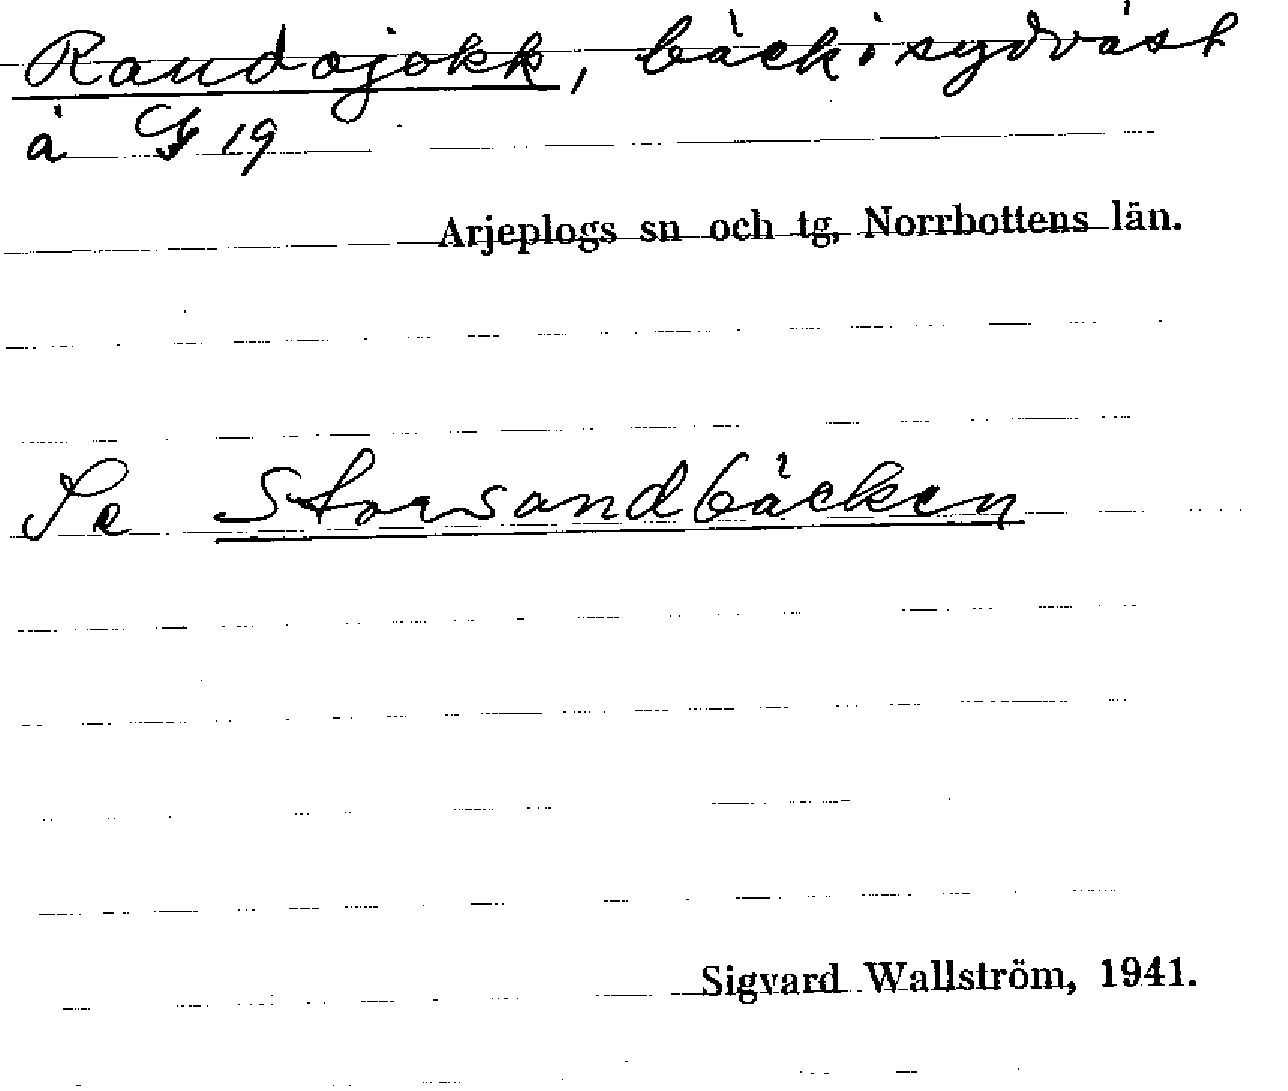 Raudojokk, bäck i sydväst
å G 19
Arjeplogs sn och tg, Norrbottens län.
Se Storsandbäcken
Sigvard Wallström, 1941.